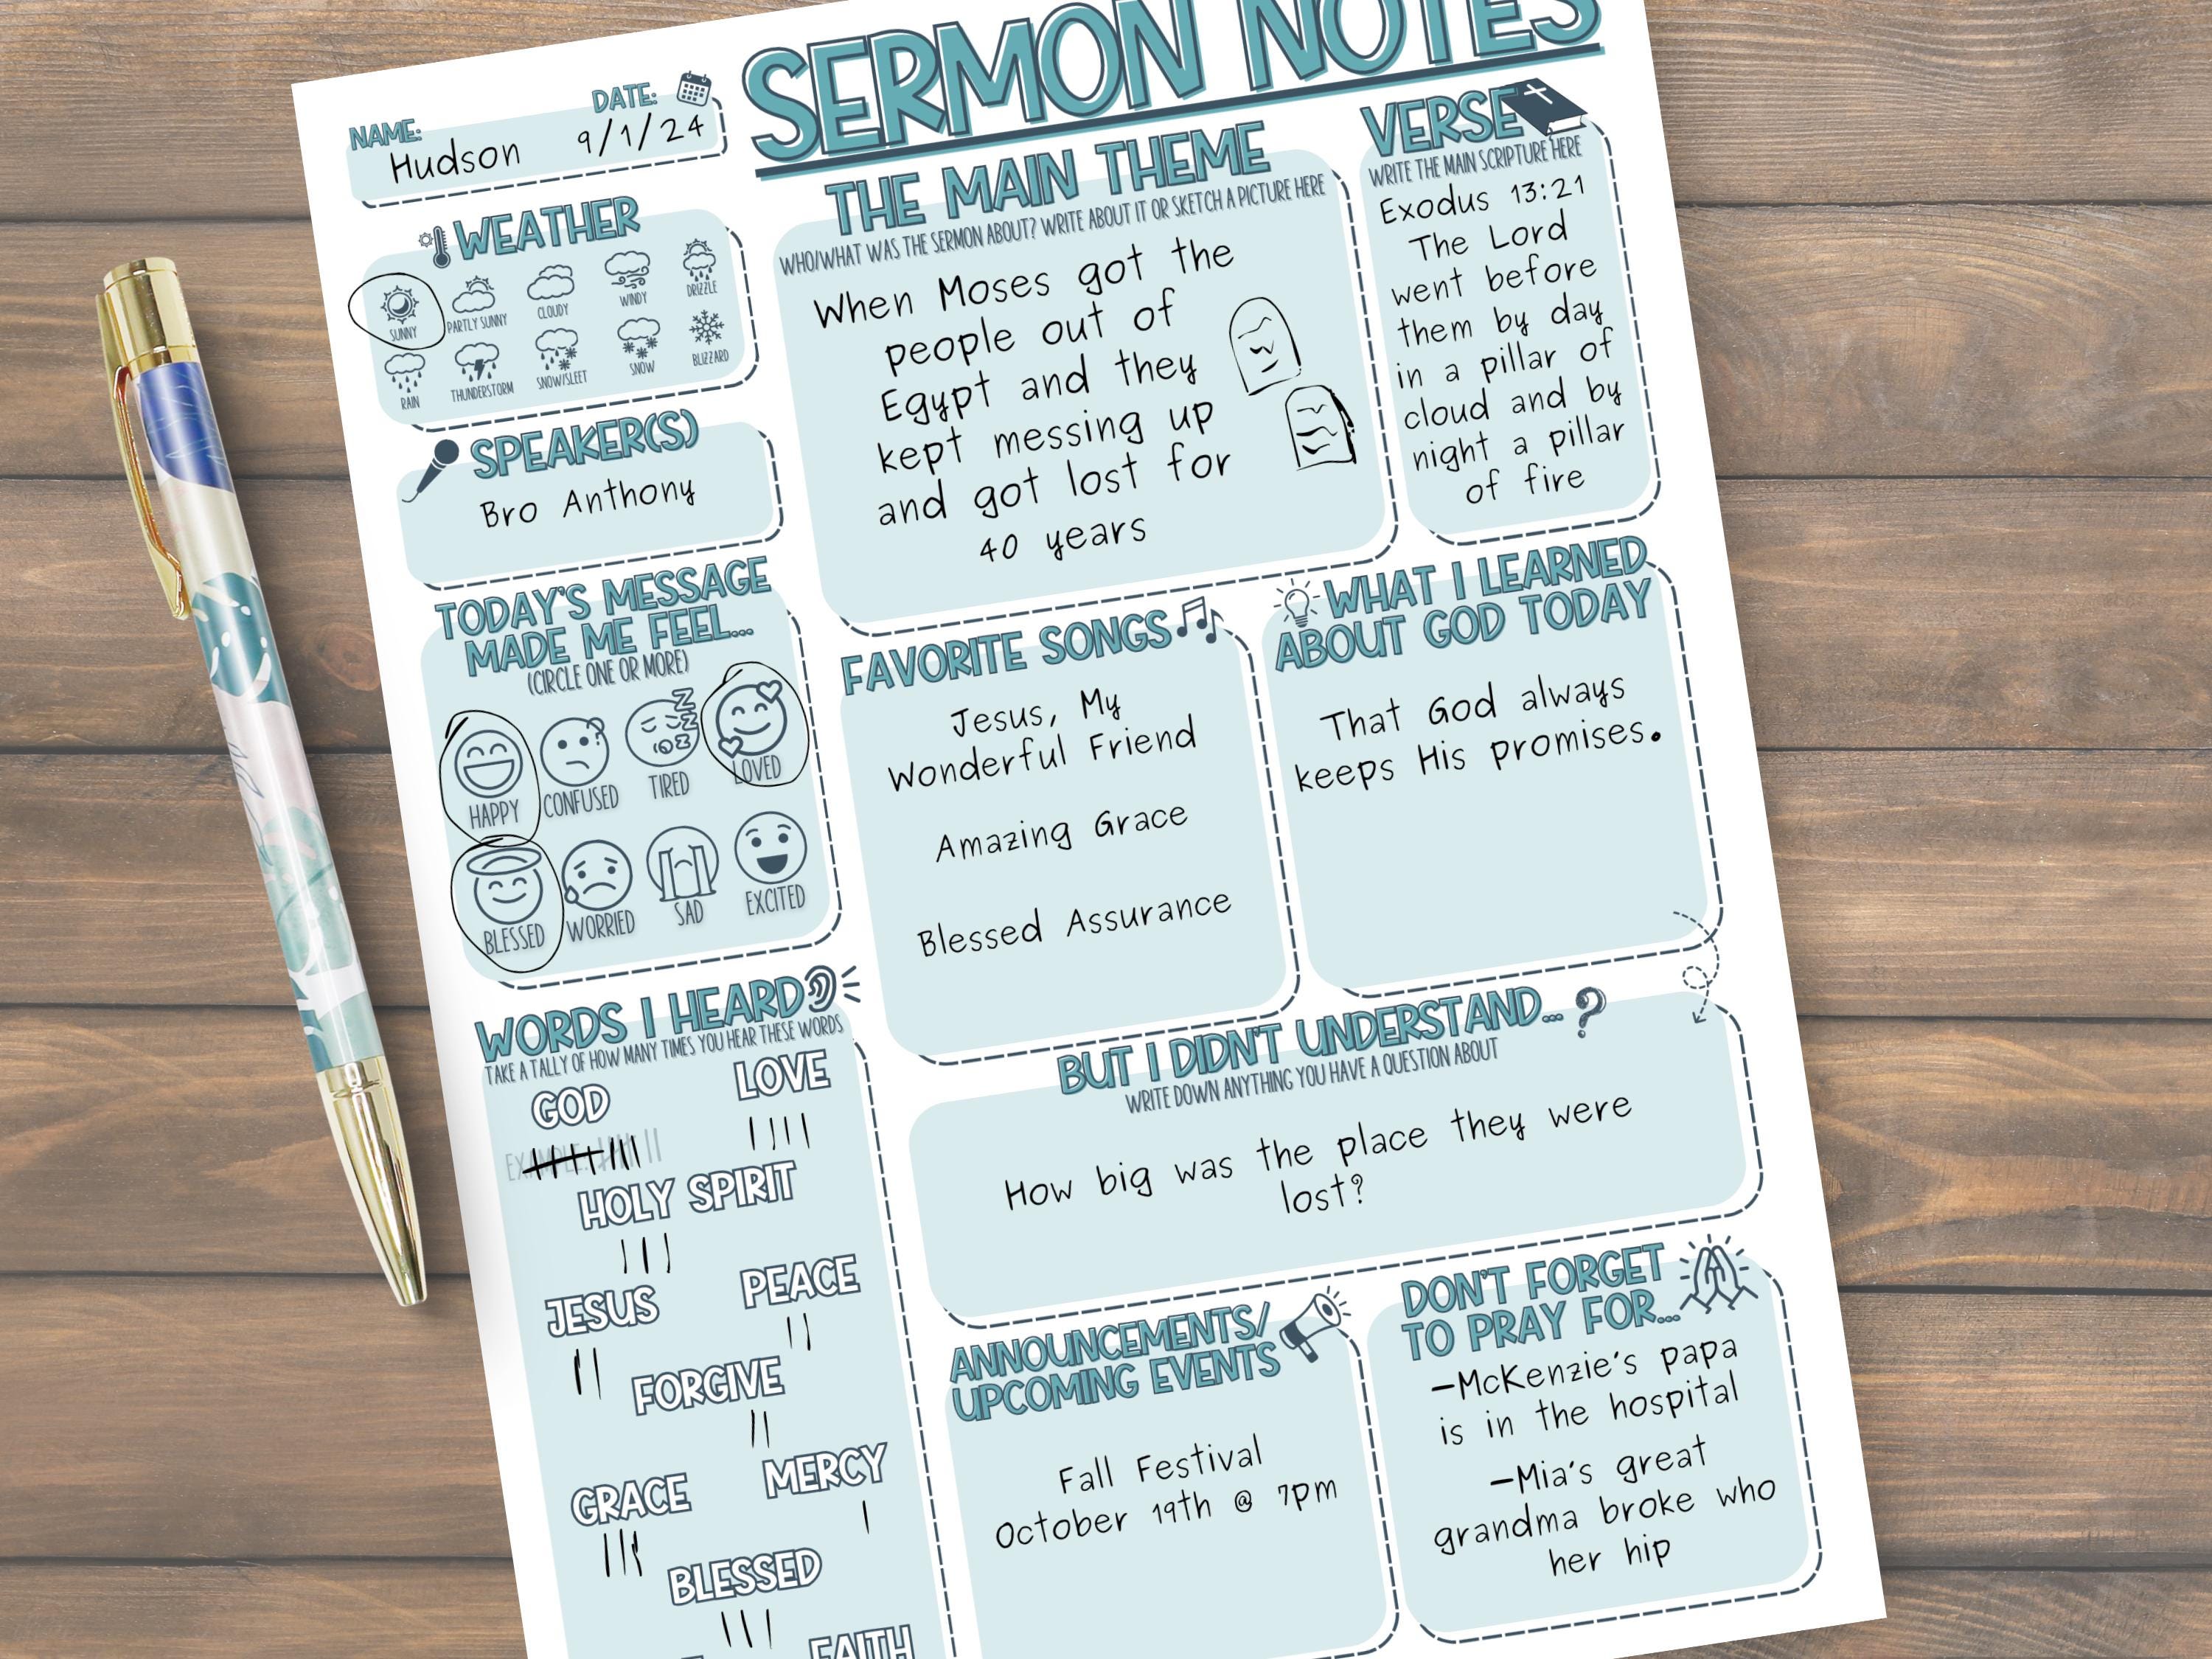 SERMON NOTES
NAME:
Hudson
DATE:
9/1/24
WEATHER
SUNNY
PARTLY SUNNY
CLOUDY
WINDY
DRIZZLE
RAIN
THUNDERSTORM
SNOW/SLEET
SNOW
BLIZZARD
SPEAKER(S)
Bro Anthony
TODAY'S MESSAGE
MADE ME FEEL...
(CIRCLE ONE OR MORE)
HAPPY
CONFUSED
TIRED
LOVED
BLESSED
WORRIED
SAD
EXCITED
WORDS I HEARD
TAKE A TALLY OF HOW MANY TIMES YOU HEAR THESE WORDS
GOD
LOVE
EXAMPLE:
HOLY SPIRIT
JESUS
PEACE
FORGIVE
GRACE
MERCY
BLESSED
FAITH
THE MAIN THEME
WHO/WHAT WAS THE SERMON ABOUT? WRITE ABOUT IT OR SKETCH A PICTURE HERE
When Moses got the
people out of
Egypt and they
kept messing up
and got lost for
40 years
VERSE
WRITE THE MAIN SCRIPTURE HERE
Exodus 13:21
The Lord
went before
them by day
in a pillar of
cloud and by
night a pillar
of fire
FAVORITE SONGS
Jesus, My
Wonderful Friend
Amazing Grace
Blessed Assurance
WHAT I LEARNED
ABOUT GOD TODAY
That God always
keeps His promises.
BUT I DIDN'T UNDERSTAND... ?
WRITE DOWN ANYTHING YOU HAVE A QUESTION ABOUT
How big was the place they were
lost?
ANNOUNCEMENTS/
UPCOMING EVENTS
Fall Festival
October 19th @ 7pm
DON'T FORGET
TO PRAY FOR...
-McKenzie's papa
is in the hospital
-Mia's great
grandma broke who
her hip